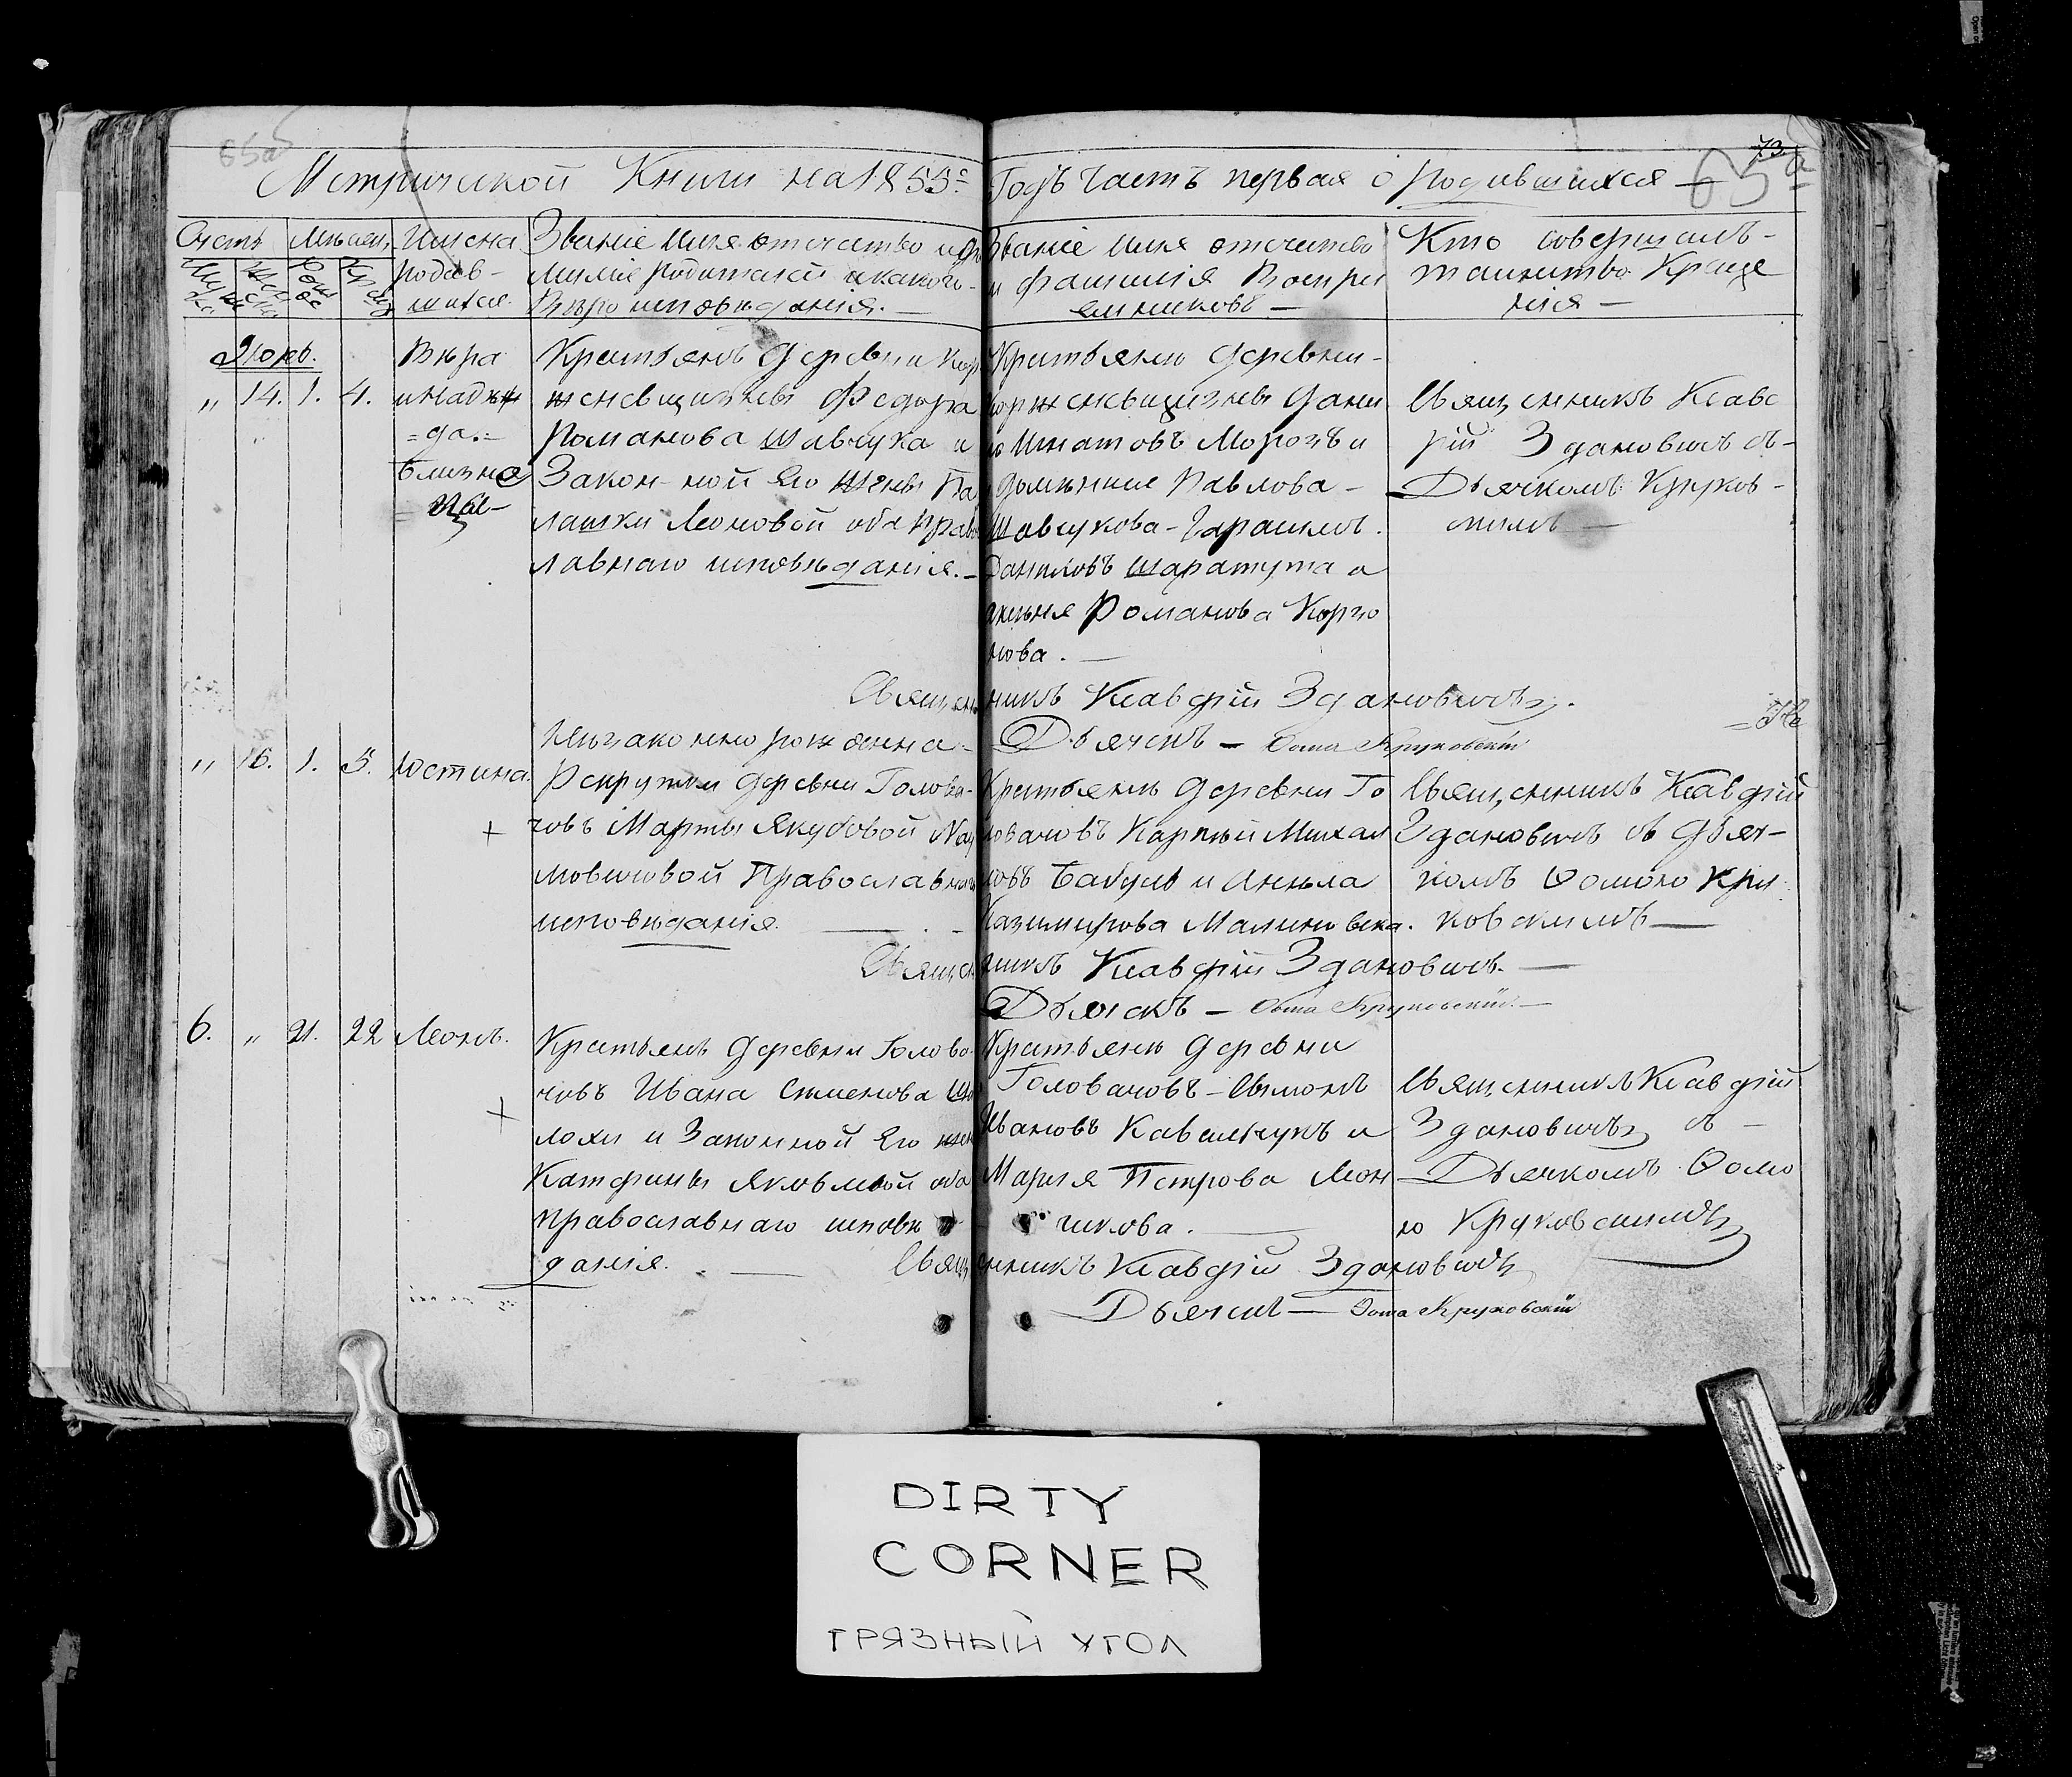 65а
73.
Метрической Книги на 1855º Годъ Часть первая о родившихся —
Счетъ
Мѣсяц.
Имена
родив-
шихся.
Званіе Имя отчество и фа
милія Родителей и какого-
Вѣроисповѣданія. —
Званіе Имя отчество
и фамилія Воспри
емниковъ —
Кто совершалъ-
таинство Креще
нія —
Іюнь.
„ 14. 1. 4.
Вѣра
и Надеж
=да.=
близне
Крестьянъ Деревни Кор
женевщизны Федора
Романова Шавчука и
Законной Его Жены Па
лашки Леоновой оба Право
лавнаго исповѣданія. —
Крестьяне Деревни-
Корженевщизны Дани
ло Игнатовъ Морозъ и
Доминика Павлова -
Шавчукова - Гарасимъ.
Даниловъ Шарапута и
Романова Корго
нова. —
Священникъ Клавдій Здановичъ.
Дьячекъ — Ѳома Круковскій
Священникъ Клавд
рій Здановичъ съ-
Дьячкомъ Круков-
скимъ —
„ 16. 1. 5. Юстина.
+
Незаконно рожденна-
Рекрутки Деревни Голова-
човъ Марты Якубовой Нау
мовичовой Православнаго
исповѣданія. —
Крестьяне Деревни Го
ловачовъ Карпъ Михал
ковъ Бабуль и Анѣла
Казимирова Малиновска.
Священникъ Клавдій Здановичъ. —
Дьячекъ — Ѳома Круковскій. —
Священникъ Клавдій
Здановичъ съ Дьяч-
комъ Ѳомою Кру
ковскимъ —
6. „ 21. 22 Леонъ.
+
Крестьянъ Деревни Голова
човъ Ивана Сименова
лохи и Законной Его жены
Катерины Яковлевой оба
православнаго исповѣ
данія. —
Крестьяне Деревни
Головачовъ — Сымонъ
Ивановъ Кавальчукъ и
Марія Петрова Леон
чикова. —
Священникъ Клавдій Здановичъ
Дьячекъ — Ѳома Круковскій
Священникъ Клавдій
Здановичъ съ —
Дьячкомъ Ѳомо
ю Круковскимъ
DIRTY
CORNER
ГРЯЗНЫЙ УГОЛ